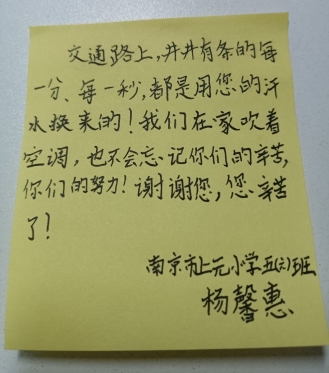 交通路上，井井有条的每
一分、每一秒，都是用您的汗
水换来的！我们在家吹着
空调，也不会忘记你们的辛苦，
你们的努力！谢谢您，您辛苦
了！
南京市上元小学五(六)班
杨馨惠